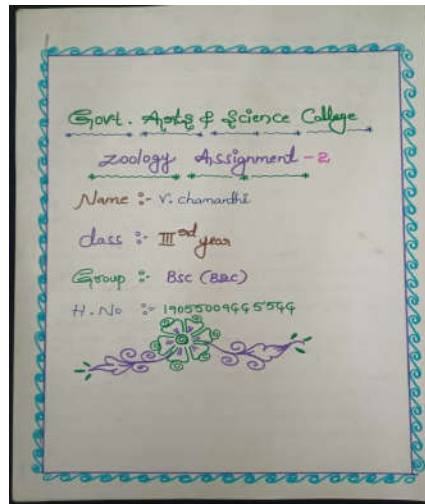 Govt. Arts & Science College
Zoology Assignment - 2
Name :- V. chamanthi
class :- III rd year
Group :- Bsc (BZC)
H.No :- 19055009445544